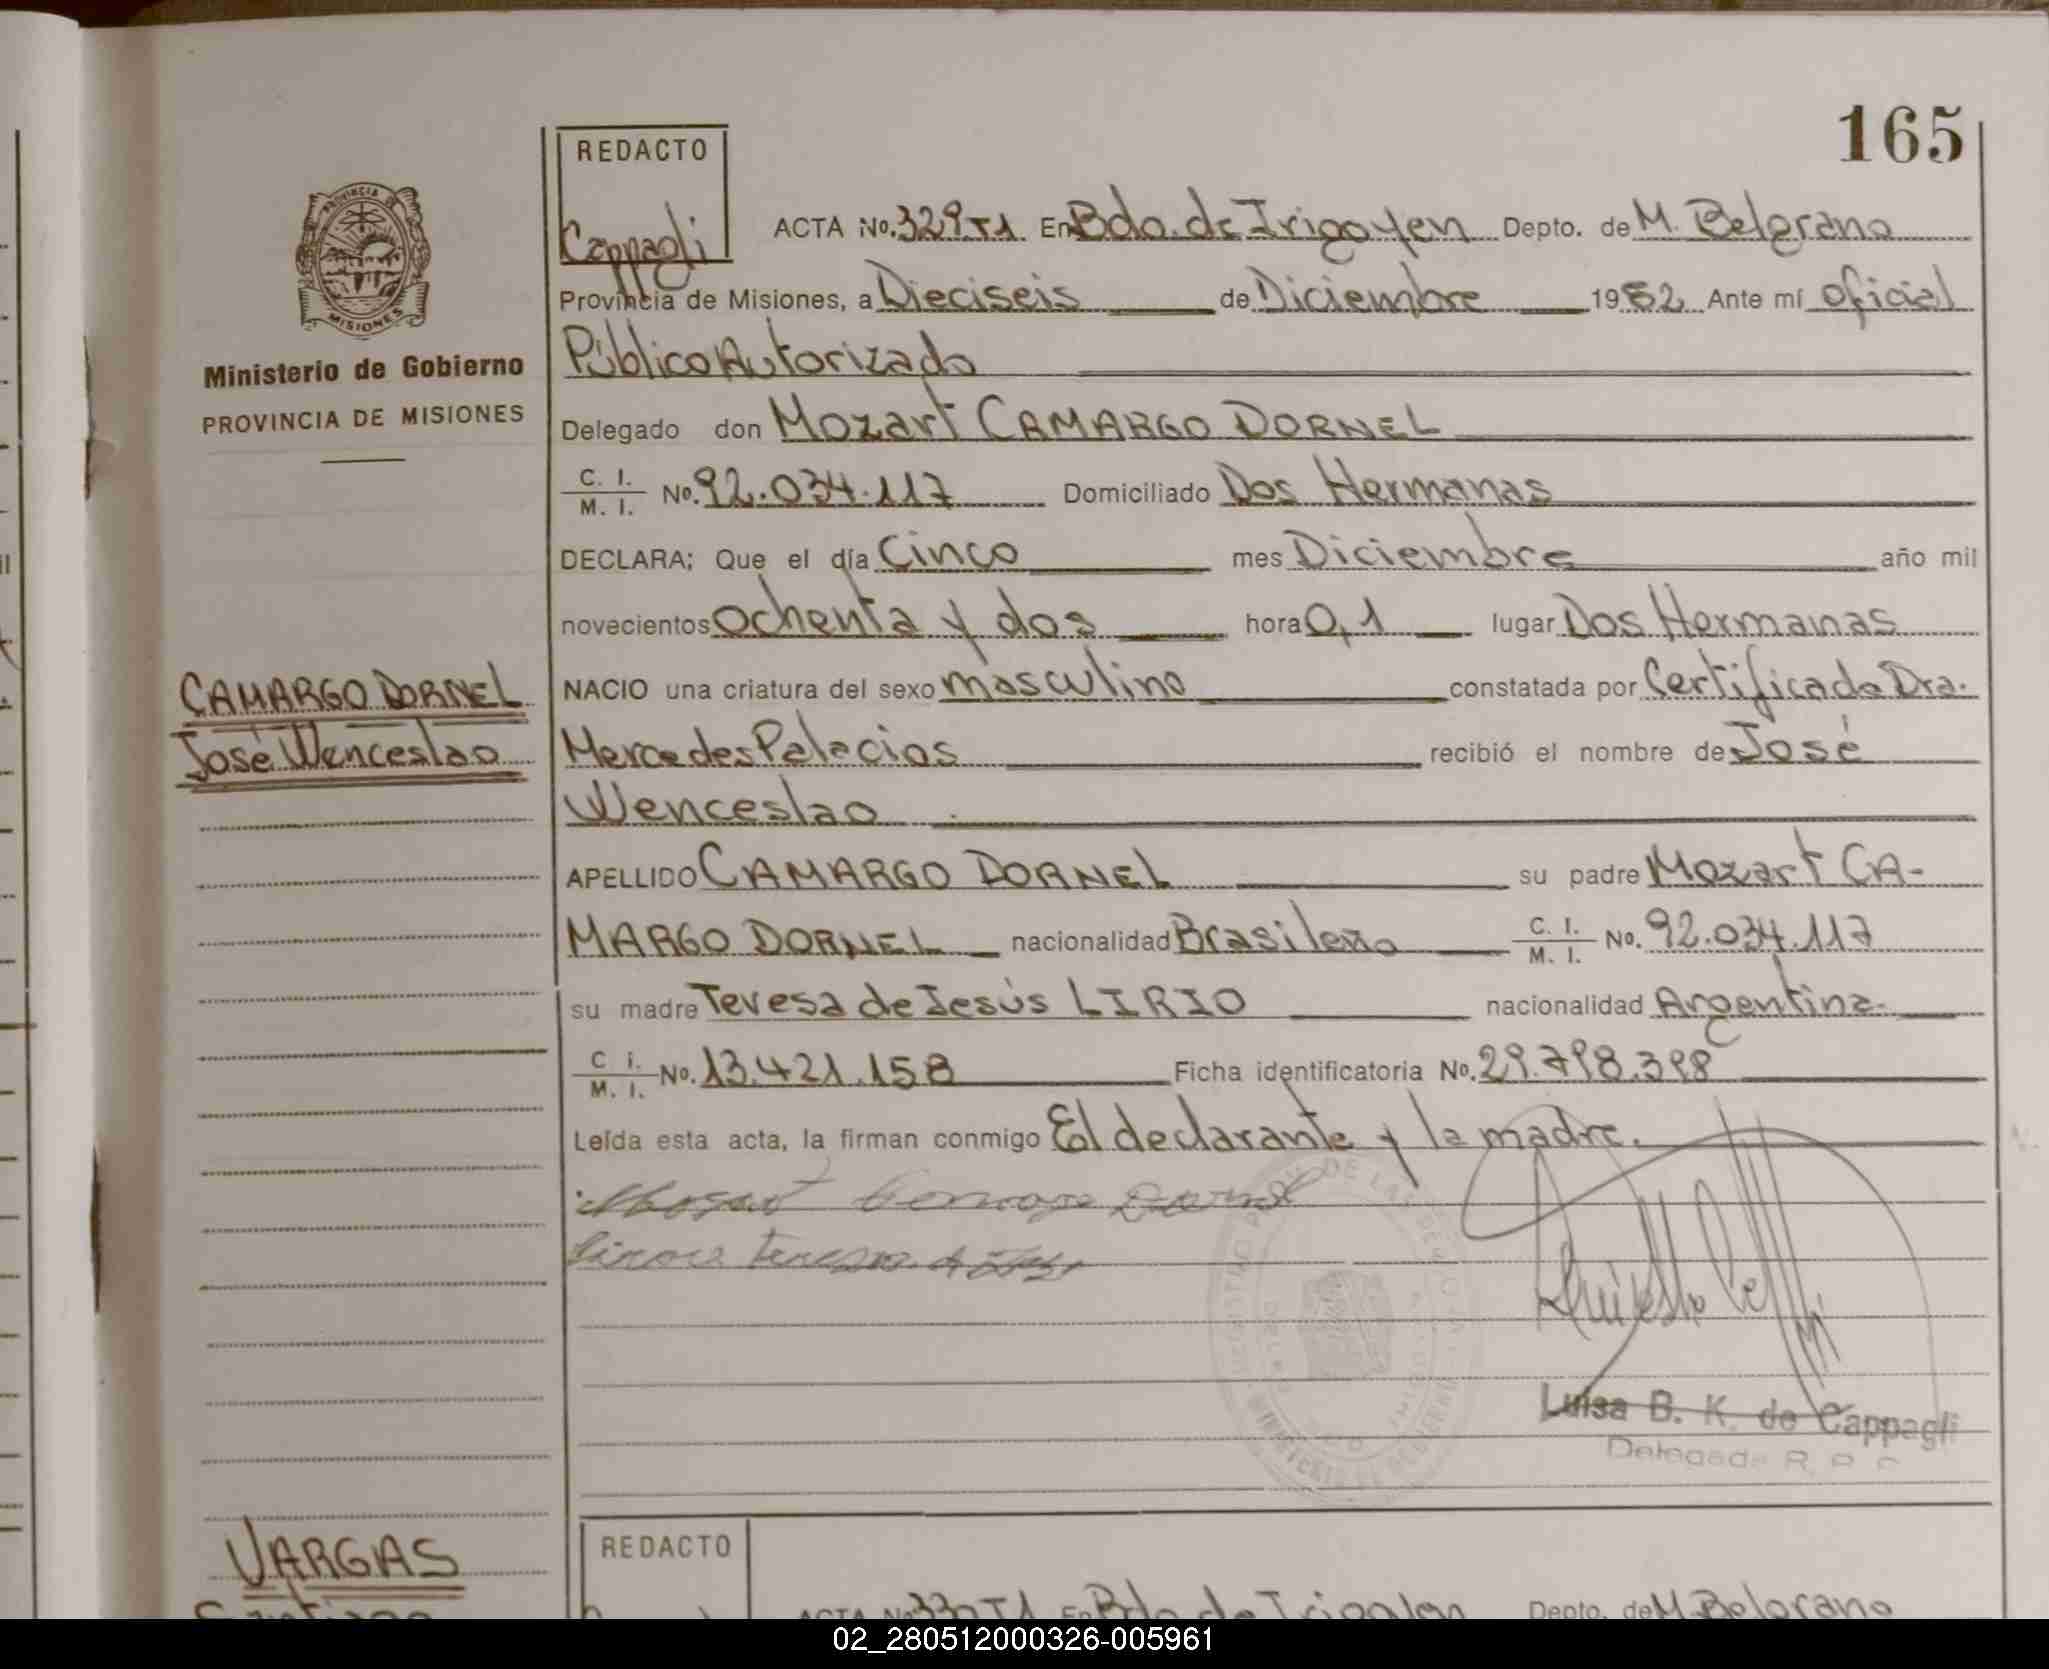 165
REDACTO
Cappagli
ACTA No. 329 T1 En Bdo. de Irigoyen Depto. de M. Belgrano
Provincia de Misiones, a Dieciseis de Diciembre 1982 Ante mí Oficial
Público Autorizado
Delegado don Mozart CAMARGO DORNEL
C. I. / M. I. No. 92.034.117 Domiciliado Dos Hermanas
DECLARA; Que el día Cinco mes Diciembre año mil
novecientos ochenta y dos hora 0,1 lugar Dos Hermanas
NACIO una criatura del sexo masculino constatada por Certificado Dra.
Mercedes Palacios recibió el nombre de José
Wenceslao
APELLIDO CAMARGO DORNEL su padre Mozart CA-
MARGO DORNEL nacionalidad Brasileño C. I. / M. I. No. 92.034.117
su madre Teresa de Jesús LIRIO nacionalidad Argentina
C i. / M. I. No. 13.421.158 Ficha identificatoria No. 29.798.398
Leída esta acta, la firman conmigo El declarante y la madre.
Luisa B. K. de Cappagli
Delegada R. P.
PROVINCIA
MISIONES
Ministerio de Gobierno
PROVINCIA DE MISIONES
CAMARGO DORNEL
José Wenceslao
VARGAS
REDACTO
ACTA No 330 T1 En Bdo de Irigoyen Depto. de M Belgrano
02_280512000326-005961